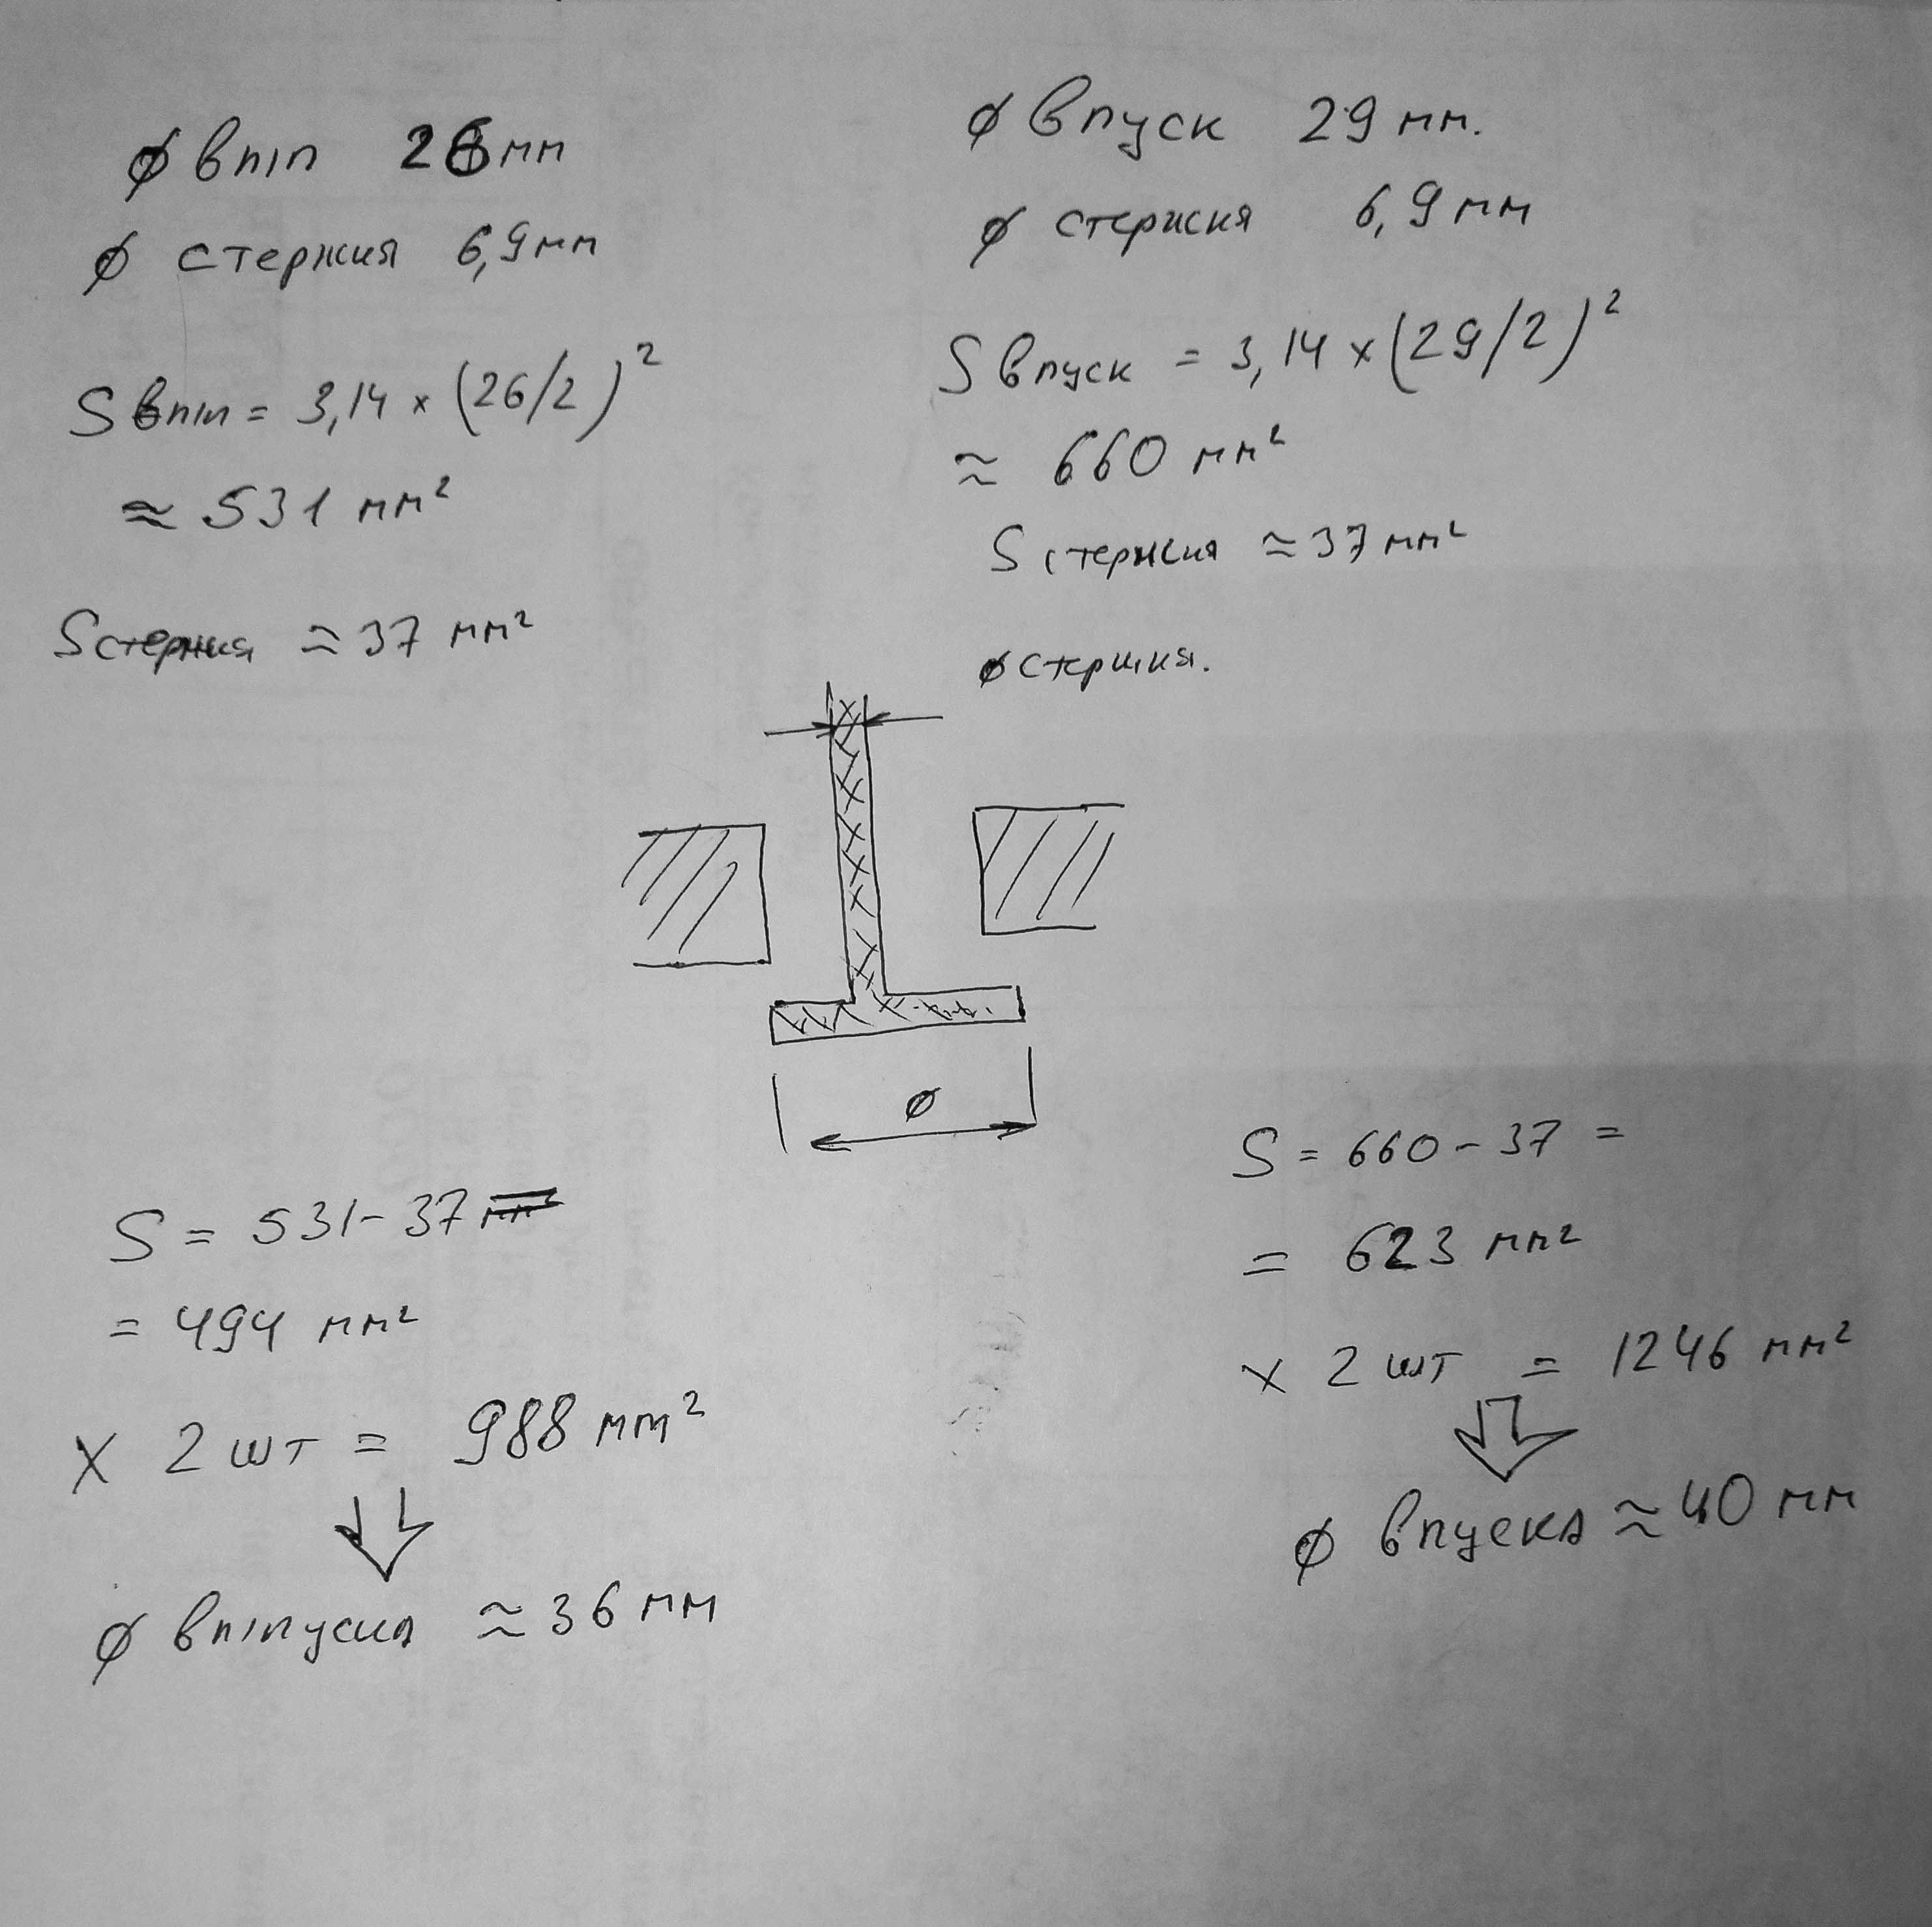 ∅ вып 26 мм
∅ стержня 6,9 мм
S вып = 3,14 × (26/2)²
≈ 531 мм²
S стержня ≈ 37 мм²
∅ впуск 29 мм.
∅ стержня 6,9 мм
S впуск = 3,14 × (29/2)²
≈ 660 мм²
S стержня ≈ 37 мм²
∅ стержня.
∅
S = 531 - 37
= 494 мм²
× 2 шт = 988 мм²
∅ выпуска ≈ 36 мм
S = 660 - 37 =
= 623 мм²
× 2 шт = 1246 мм²
∅ впуска ≈ 40 мм